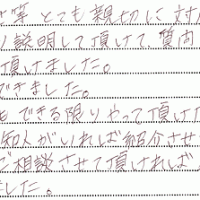 とても親切に対
説明して頂けて、質問
頂けました。
できました。
できる限りやって頂けた
知人がいれば紹介させ
ご相談させて頂ければ
した。